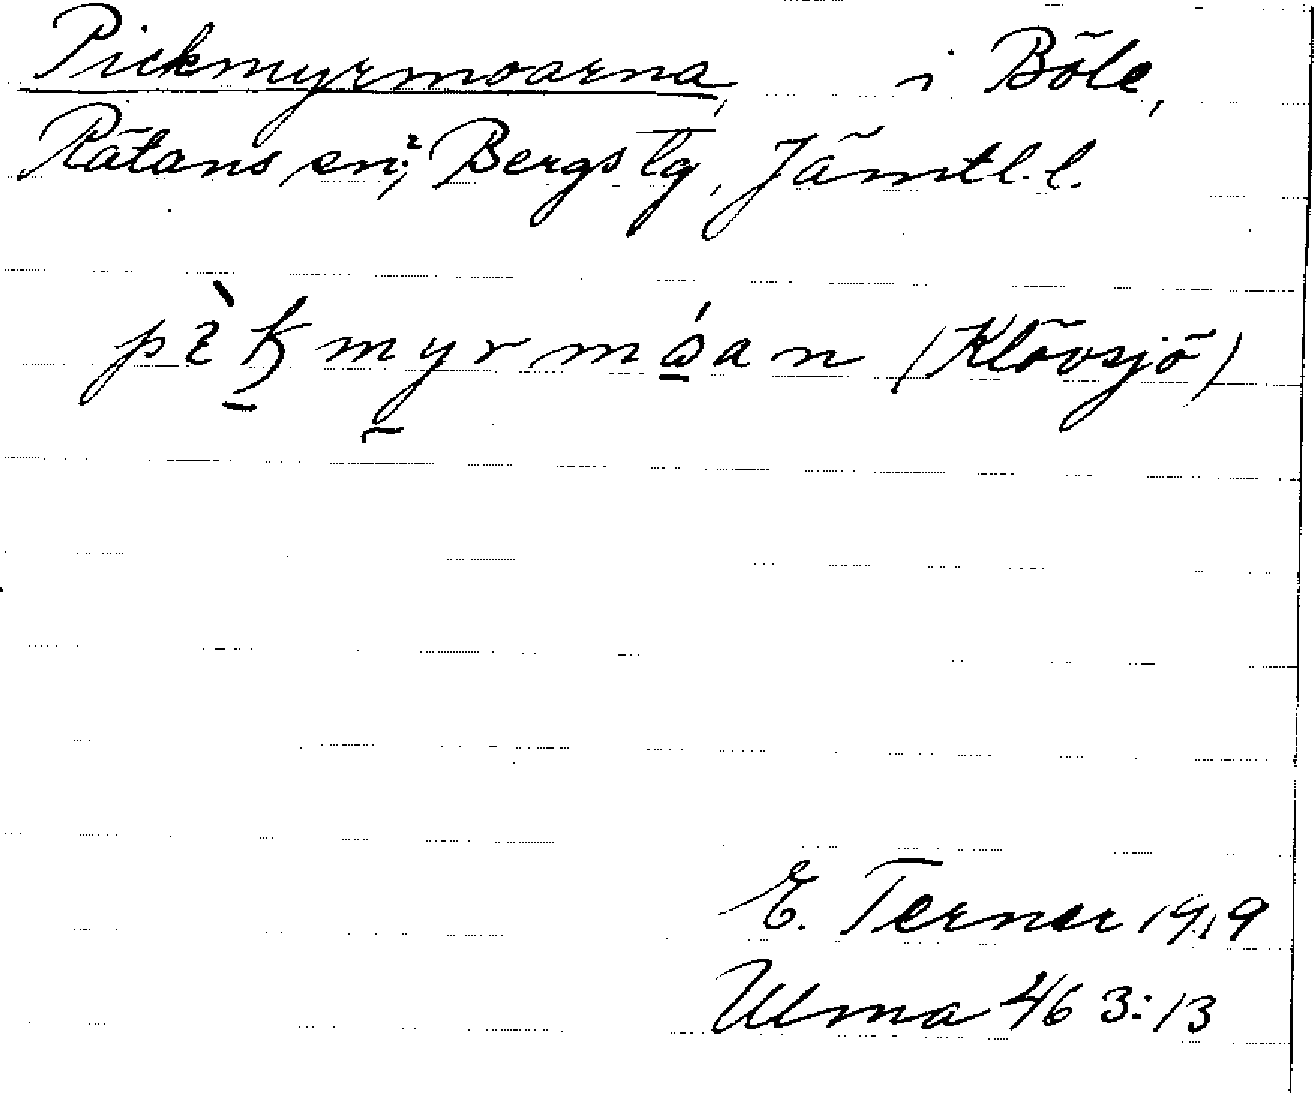 Pickmyrmoarna, i Böle,
Rätans sn;, Bergs tg, Jämtl. l.
pèkmyrmóan (Klövsjö)
E. Terner 1919
Ulma 463:13